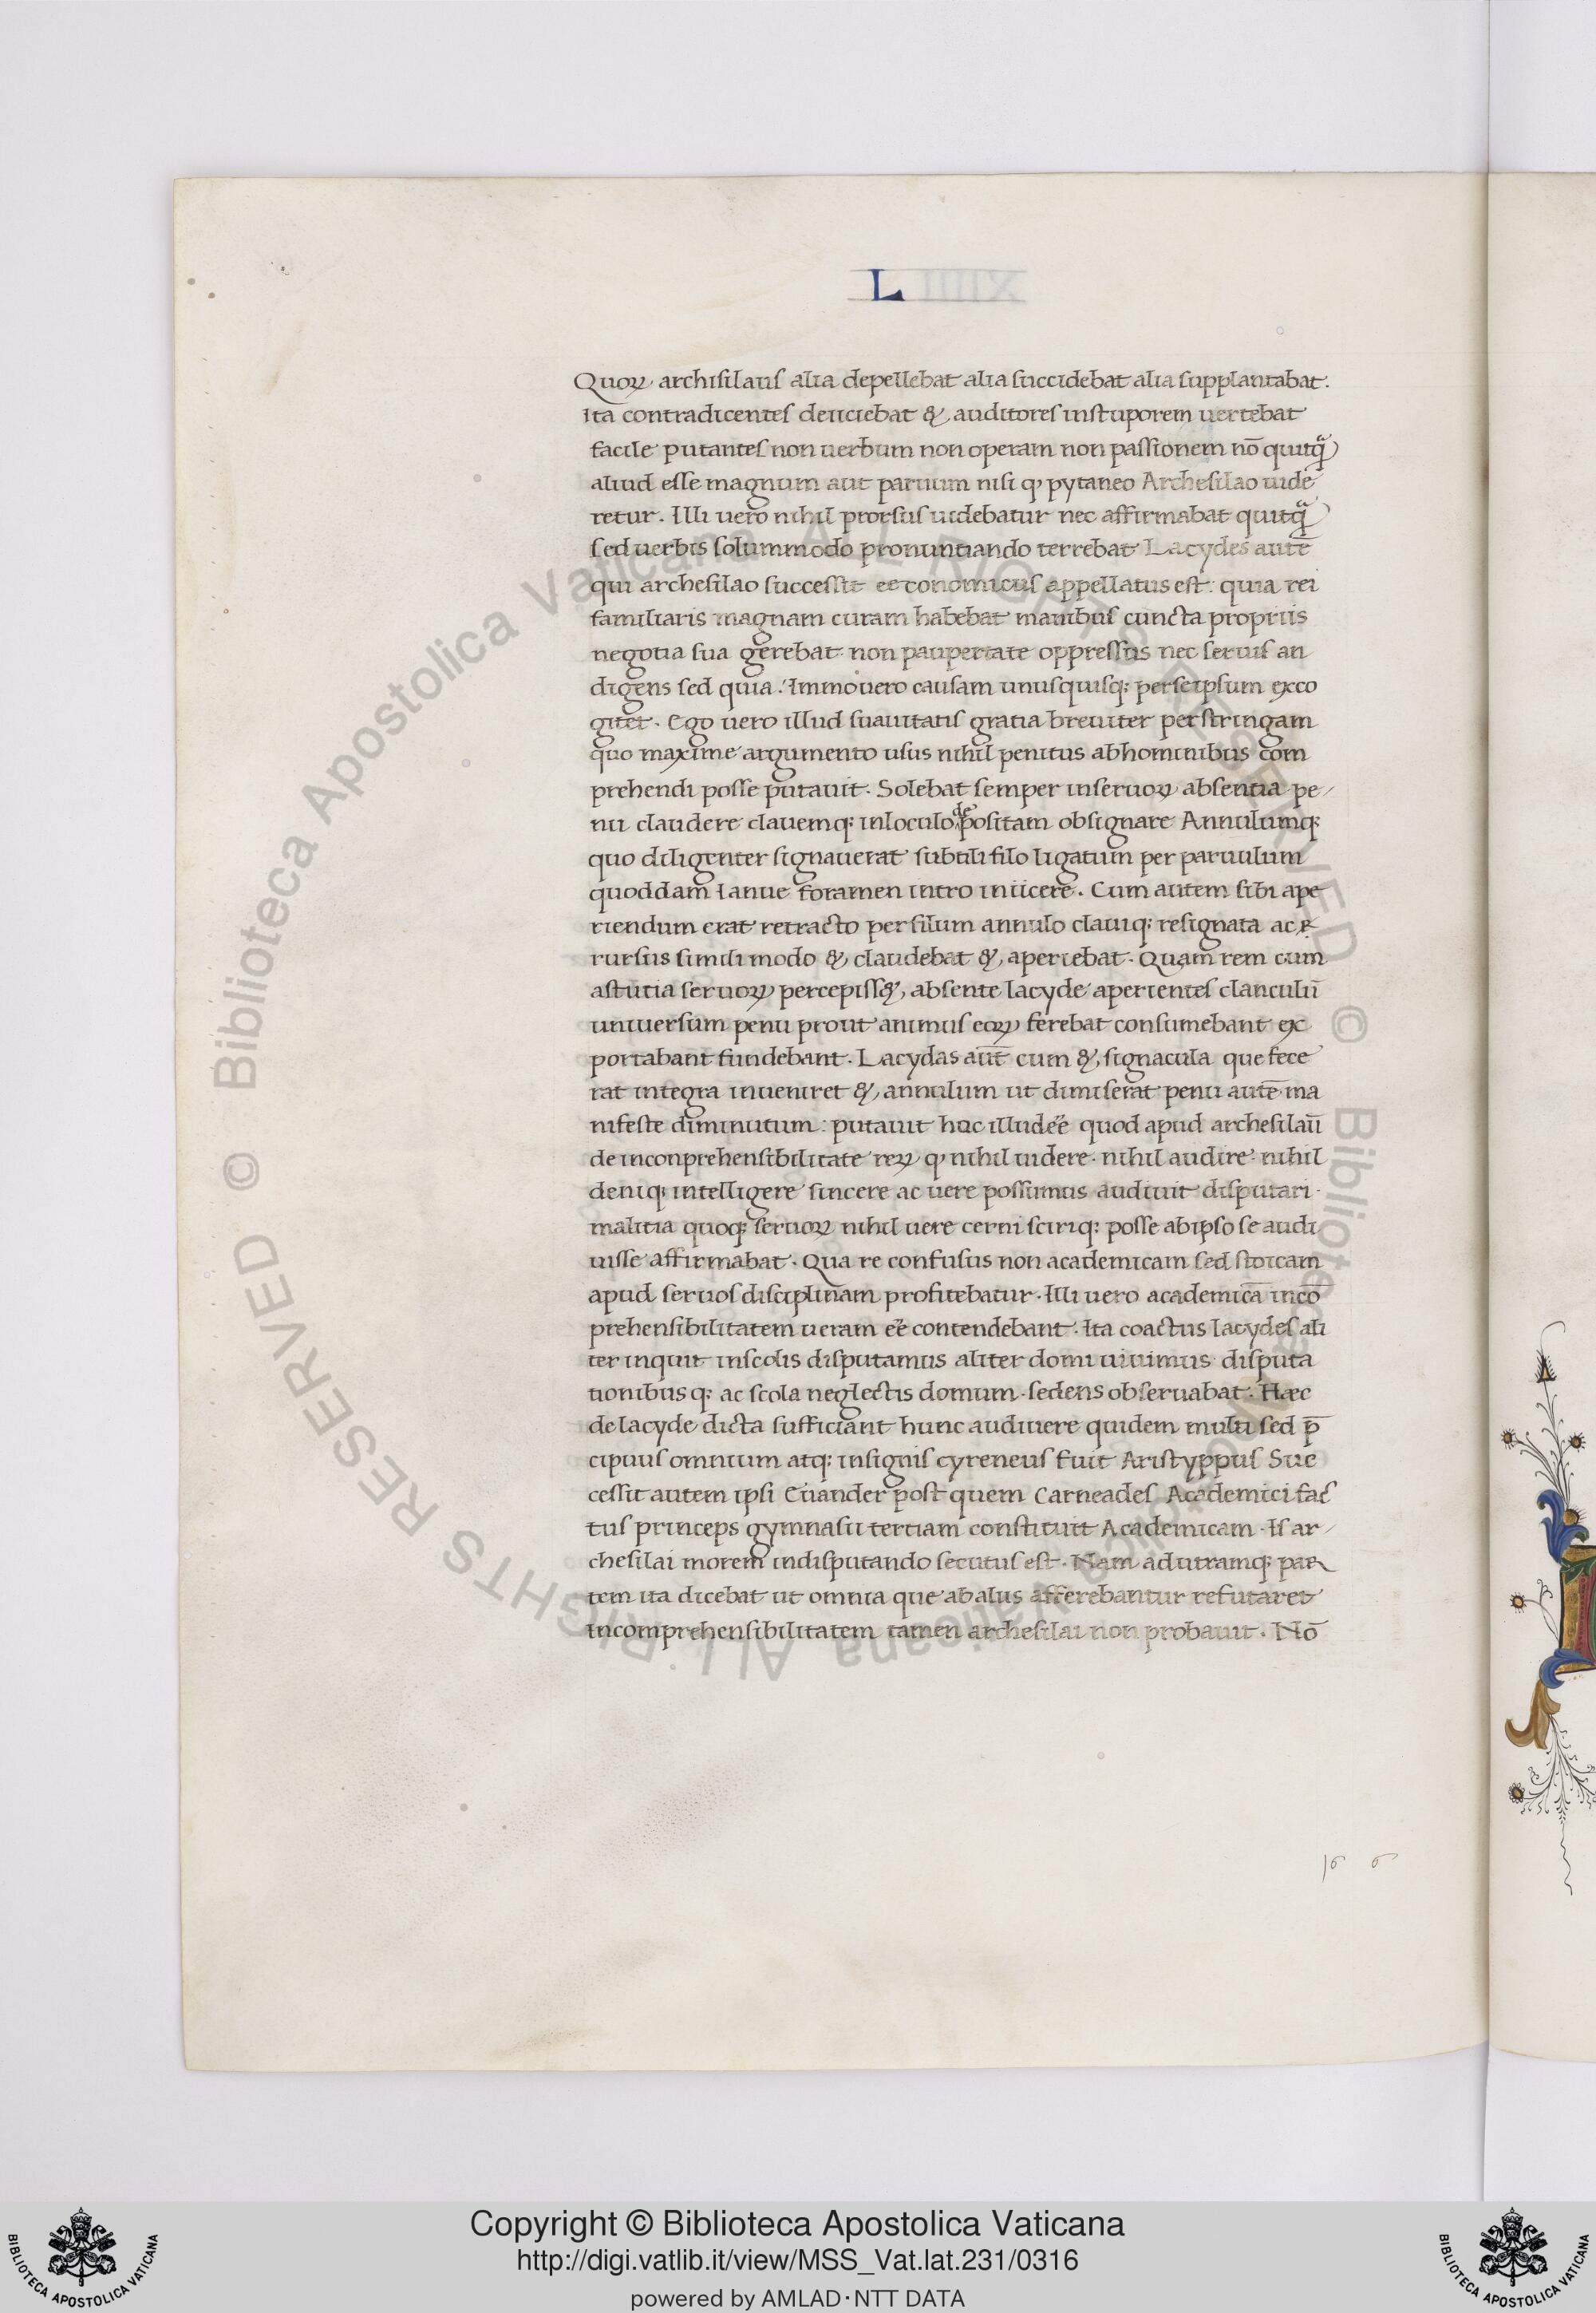 L
Quoꝝ archisilaus alia depellebat alia succidebat alia supplantabat.
Ita contradicentes deiiciebat & auditores instuporem uertebat
facile putantes non uerbum non operam non passionem nō quitqᷓ
aliud esse magnum aut paruum nisi ꝙ pytaneo Archesilao uide
retur. Illi uero nihil prorsus uidebatur nec affirmabat quitqᷓ
sed uerbis solummodo pronuntiando terrebat Lacydes autē
qui archesilao successit economicus appellatus est: quia rei
familiaris magnam curam habebat manibus cuncta propriis
negotia sua gerebat non paupertate oppressus nec seruis an
digens sed quia. Immouero causam unusquisq; perseipsum exco
gitet. Ego uero illud suauitatis gratia breuiter perstringam
quo maxime argumento usus nihil penitus abhominibus com
prehendi posse putauit. Solebat semper inseruoꝝ absentia pe/
nu claudere clauemq; inloculo depositam obsignare Annulumq;
quo diligenter signauerat subtili filo ligatum per paruulum
quoddam Ianue foramen intro iniicere. Cum autem sibi ape
riendum erat retracto per filum annulo clauiq; resignata ac r
rursus simili modo & claudebat & aperiebat. Quam rem cum
astutia seruoꝝ percepiss& absente lacyde aperientes clanculū
uniuersum penu prout animus eoꝝ ferebat consumebant ex
portabant fundebant. Lacydas aut̄ cum & signacula que fece
rat integra inueniret & annulum ut dimiserat penu autē ma
nifeste diminutum: putauit hoc illud eē quod apud archesilaū
de inconprehensibilitate reꝝ ꝙ nihil uidere. nihil audire. nihil
deniq; intelligere sincere ac uere possimus audiuit disputari.
malitia quoq; seruoꝝ nihil uere cerni sciriq; posse abipso se audi
uisse affirmabat. Qua re confusus non academicam sed stoicam
apud seruos disciplinam profitebatur. Illi uero academicā incō
prehensibilitatem ueram eē contendebant. Ita coactus lacydes ali
ter inquit inscolis disputamus aliter domi uiuimus disputa
tionibus q; ac scola neglectis domum. sedens obseruabat. Hæc
delacyde dicta sufficiant hunc audiuere quidem multi sed p̄
cipuus omnium atq; insignis cyreneus fuit Aristyppus Suc
cessit autem ipsi Euander post quem Carneades Academici fac
tus princeps gymnasii tertiam constituit Academicam. Is ar/
chesilai morem indisputando secutus est. Nam adutramq; par
tem ita dicebat ut omnia que abaliis afferebantur refutaret
Incomprehensibilitatem tamen archesilai non probauit. Nō
Copyright © Biblioteca Apostolica Vaticana
http://digi.vatlib.it/view/MSS_Vat.lat.231/0316
powered by AMLAD·NTT DATA
BIBLIOTECA APOSTOLICA VATICANA
BIBLIOTECA APOSTOLICA VATICANA
© Biblioteca Apostolica Vaticana ALL RIGHTS RESERVED
© Biblioteca Apostolica Vaticana ALL RIGHTS RESERVED